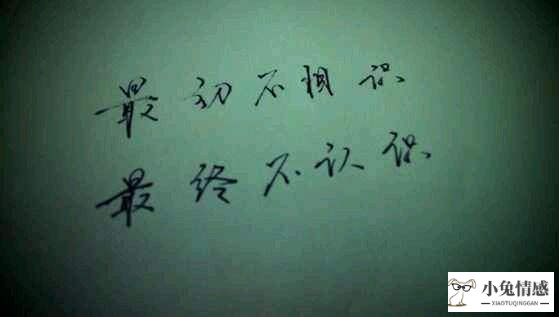 最初不相识
最终不认识
小兔情感
XIAOTUQINGGAN